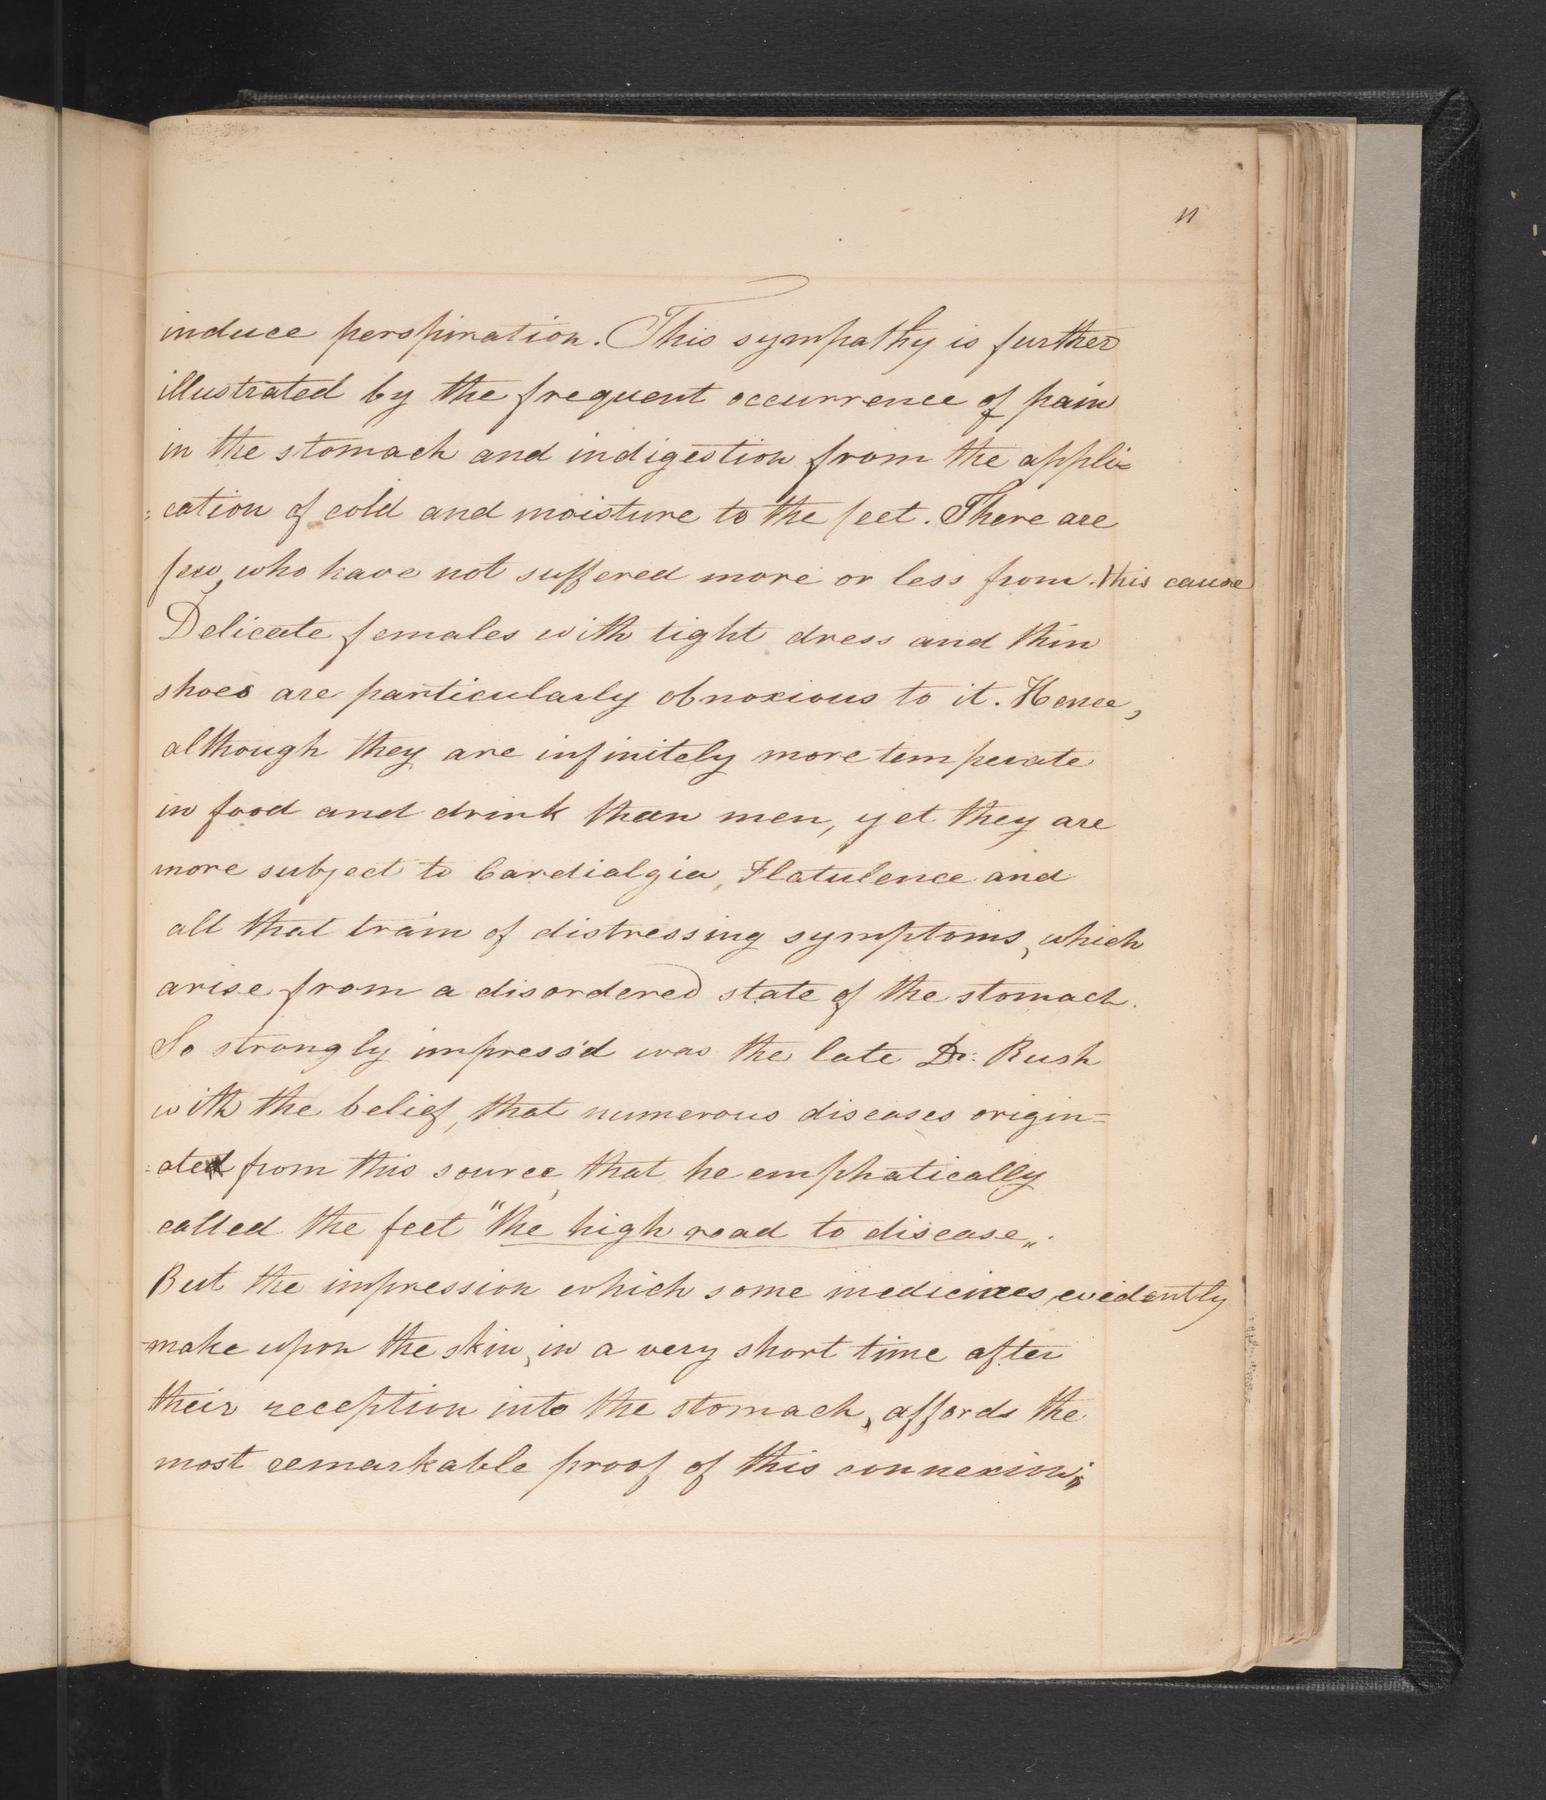 11
induce perspiration. This sympathy is further
illustrated by the frequent occurrence of pain
in the stomach and indigestion from the appli=
:cation of cold and moisture to the feet. There are
few, who have not suffered more or less from this cause
Delicate females with tight dress and thin
shoes are particularly obnoxious to it. Hence,
although they are infinitely more temperate
in food and drink than men, yet they are
more subject to Cardialgia, Flatulence and
all that train of distressing symptoms, which
arise from a disordered state of the stomach.
So strongly impress'd was the late Dr: Rush
with the belief, that numerous diseases origin=
:ated from this source, that he emphatically
called the feet "the high road to disease„.
But the impression which some medicines evidently
make upon the skin, in a very short time after
their reception into the stomach, affords the
most remarkable proof of this connexion;